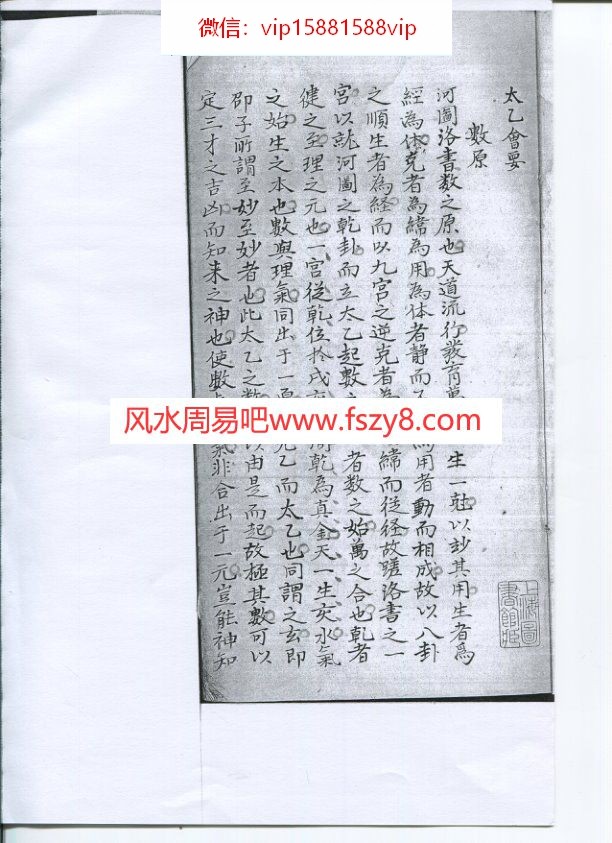 微信：vip15881588vip
太乙會要
數原
河圖洛書數之原也天道流行發育萬生一尅以妙其用生者爲
經為体克者為緯為用為体者静而為用者動而相成故以八卦
之順生者為経而以九宮之逆克者為緯而従経故蹉洛書之一
宮以就河圖之乾卦而立太乙起數者数之始萬之合也乹者
健之至理之元也一宮従乾位於戌乾為真金天一生炁水氣
之始生之本也數與理氣同出于一乙而太乙也同謂之玄即
邵子所謂至妙至妙者也此太乙之数以由是而起故極其數可以
定三才之吉凶而知来之神也使數氣非合出于一元豈能神知
风水周易吧www.fszy8.com
上海圖書館藏